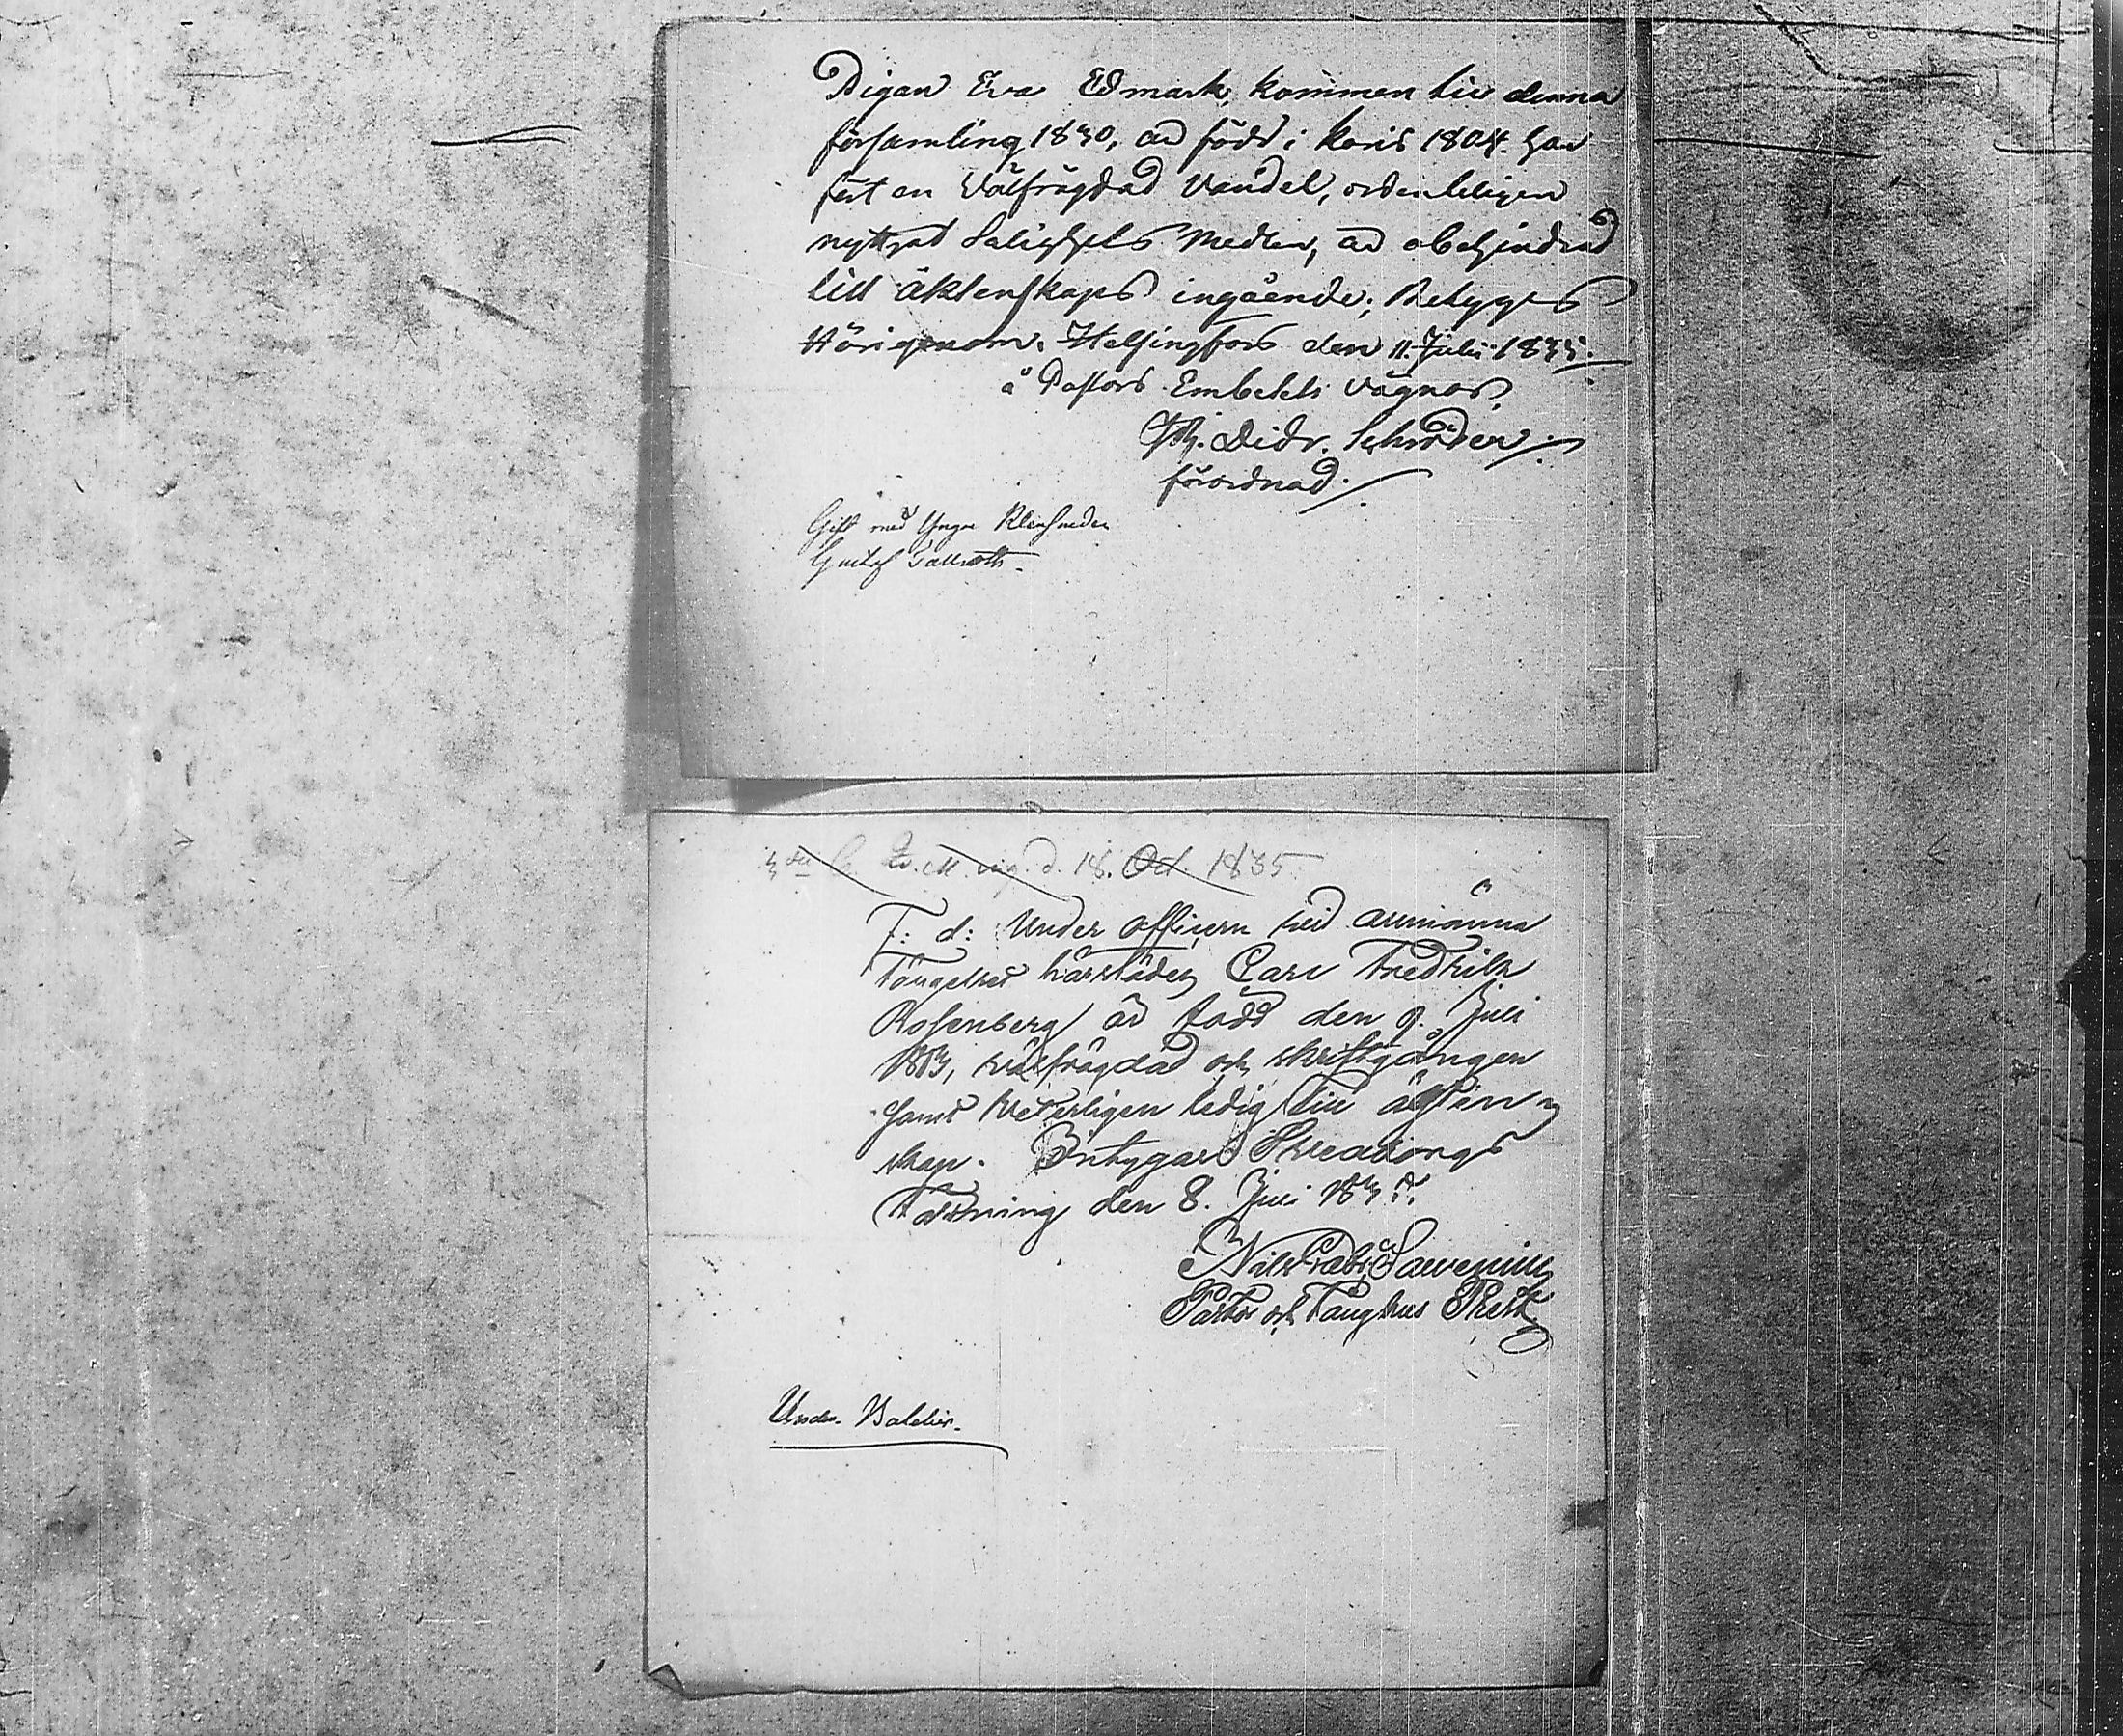 Pigan Eva Edmark, kommen till denna
församling 1830, är född i Karis 1804. har
fört en välfrägdad vandel, ordenteligen
nyttjat Salighets Medlen, är obehindrad
till äktenskaps ingående; Betygges
Härigenom. Helsingfors den 11. Julii 1835.
å Pastors Embetets vägnar,
Didr. Schröder
förordnad.
Gift med Yngre Klensmeden
Gustaf Tallroth.
d. 18. Oct. 1835.
F: d: Under officern vid allmänna
Fängelset härstädes Carl Fredrik
Rosenberg är född den 9. Juli
välfrägdad och skriftgången
samt veterligen ledig till ägten-
skap. Intygar Sveaborgs
Fästning den 8. Juli
Nils Gabr.
Pastor och Fånghus Prest
Under